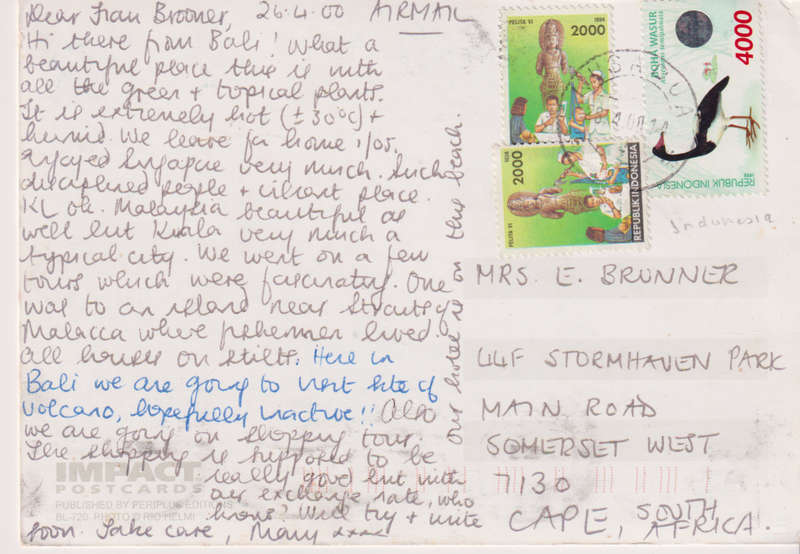 Dear Frau Brooner, 26.4.00 AIRMAIL
Hi there from Bali! What a
beautiful place this is with
all the green + tropical plants.
It is extremely hot (±30°C) +
humid. We leave for home 1/05.
Enjoyed Singapore very much. Such a
disciplined people + vibrant place.
KL ok. Malaysia beautiful as
well but Kuala very much a
typical city. We went on a few
tours which were fascinating. One
was to an island near Straits of
Malacca where fishermen lived.
All houses on stilts. Here in
Bali we are going to visit site of
volcano, hopefully inactive!! Also
we are going on shopping tour.
The shopping is supposed to be
really good but with
our exchange rate, who
knows? Will try + write
soon. Take care, Mary xxxx
our hotel is on this beach.
IMPACT
POSTCARDS
PUBLISHED BY PERIPLUS EDITIONS
BL-720 PHOTO © RIO HELMI
PELITA VI 1996 2000
2000 PELITA VI 1996
REPUBLIK INDONESIA
4000
BOHA WASUR
REPUBLIK INDONESIA
1998
Indonesia
MRS. E. BRUNNER
44F STORMHAVEN PARK
MAIN ROAD
SOMERSET WEST
7130
CAPE, SOUTH AFRICA.